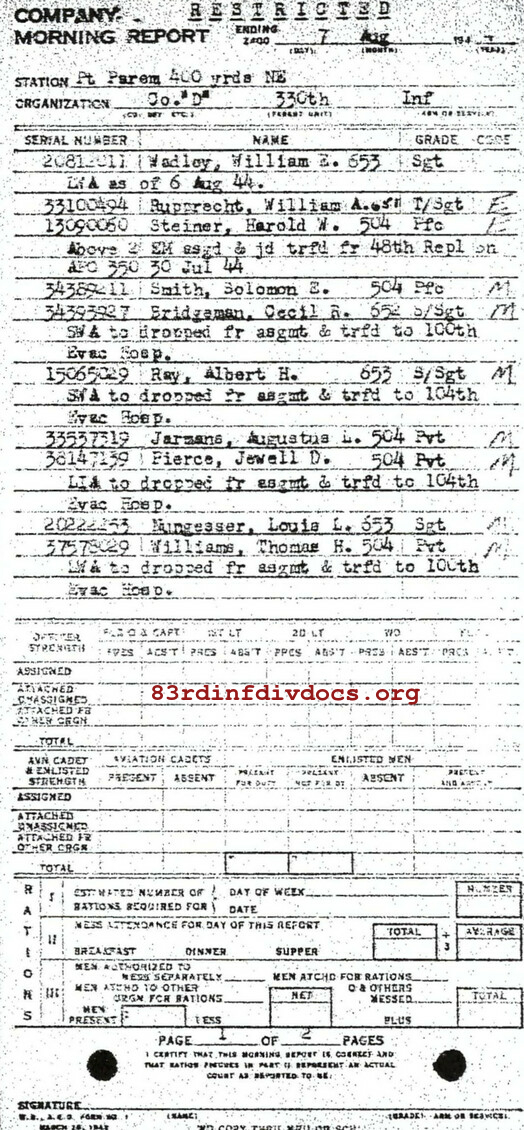 RESTRICTED
COMPANY
MORNING REPORT ENDING 2400 7 Aug 194
(DAY) (MONTH) (YEAR)
STATION Pt Parem 400 yrds NE
ORGANIZATION Co."D" 330th Inf
(PARENT UNIT) ARM OR SERVICE
SERIAL NUMBER NAME GRADE CODE
Wadley, William E. 653 Sgt
LWA as of 6 Aug 44.
33100494 Rupprecht, William A. T/Sgt E
13090060 Steiner, Harold W. 504 Pfc E
Above 2 EM asgd & jd trfd fr 48th Repl
APO 350 30 Jul 44
34389211 Smith, Solomon E. 504 Pfc M
34393927 Bridgeman, Cecil R. 652 S/Sgt M
SWA to dropped fr asgmt & trfd to 100th
Evac Hosp.
15065029 Ray, Albert H. 653 S/Sgt M
SWA to dropped fr asgmt & trfd to 104th
Evac Hosp.
33537319 Jarmans, Augustus L. 504 Pvt M
38147139 Pierce, Jewell D. 504 Pvt M
LIA to dropped fr asgmt & trfd to 104th
Evac Hosp.
Nungesser, Louis L. 653 Sgt M
37578029 Williams, Thomas H. 504 Pvt M
LWA to dropped fr asgmt & trfd to 100th
Evac Hosp.
OFFICER STRENGTH FLD O & CAPT 1ST LT 2D LT WO
PRES ABS'T PRES ABS'T PRES ABS'T PRES ABS'T PRES
ASSIGNED
ATTACHED UNASSIGNED
83rdinfdivdocs.org
ATTACHED FR OTHER ORGN
TOTAL
AVN CADET & ENLISTED STRENGTH AVIATION CADETS ENLISTED MEN
PRESENT ABSENT PRESENT FOR DUTY PRESENT NOT FOR DY ABSENT PRESENT AND ABSENT
ASSIGNED
ATTACHED UNASSIGNED
ATTACHED FR OTHER ORGN
TOTAL
RATIONS
I ESTIMATED NUMBER OF RATIONS REQUIRED FOR DAY OF WEEK DATE NUMBER
II MESS ATTENDANCE FOR DAY OF THIS REPORT TOTAL ÷ 3 AVERAGE
BREAKFAST DINNER SUPPER
III MEN AUTHORIZED TO MESS SEPARATELY MEN ATCHD FOR RATIONS
MEN ATCHD TO OTHER ORGN FOR RATIONS NET O & OTHERS MESSED TOTAL
MEN PRESENT LESS PLUS
PAGE 1 OF 2 PAGES
I CERTIFY THAT THIS MORNING REPORT IS CORRECT AND
THAT RATION FIGURES IN PART II REPRESENT AN ACTUAL
COUNT AS REPORTED TO ME:
SIGNATURE
W.D., A.G.O. FORM NO. 1 (NAME) (GRADE) ARM OR SERVICE)
MARCH